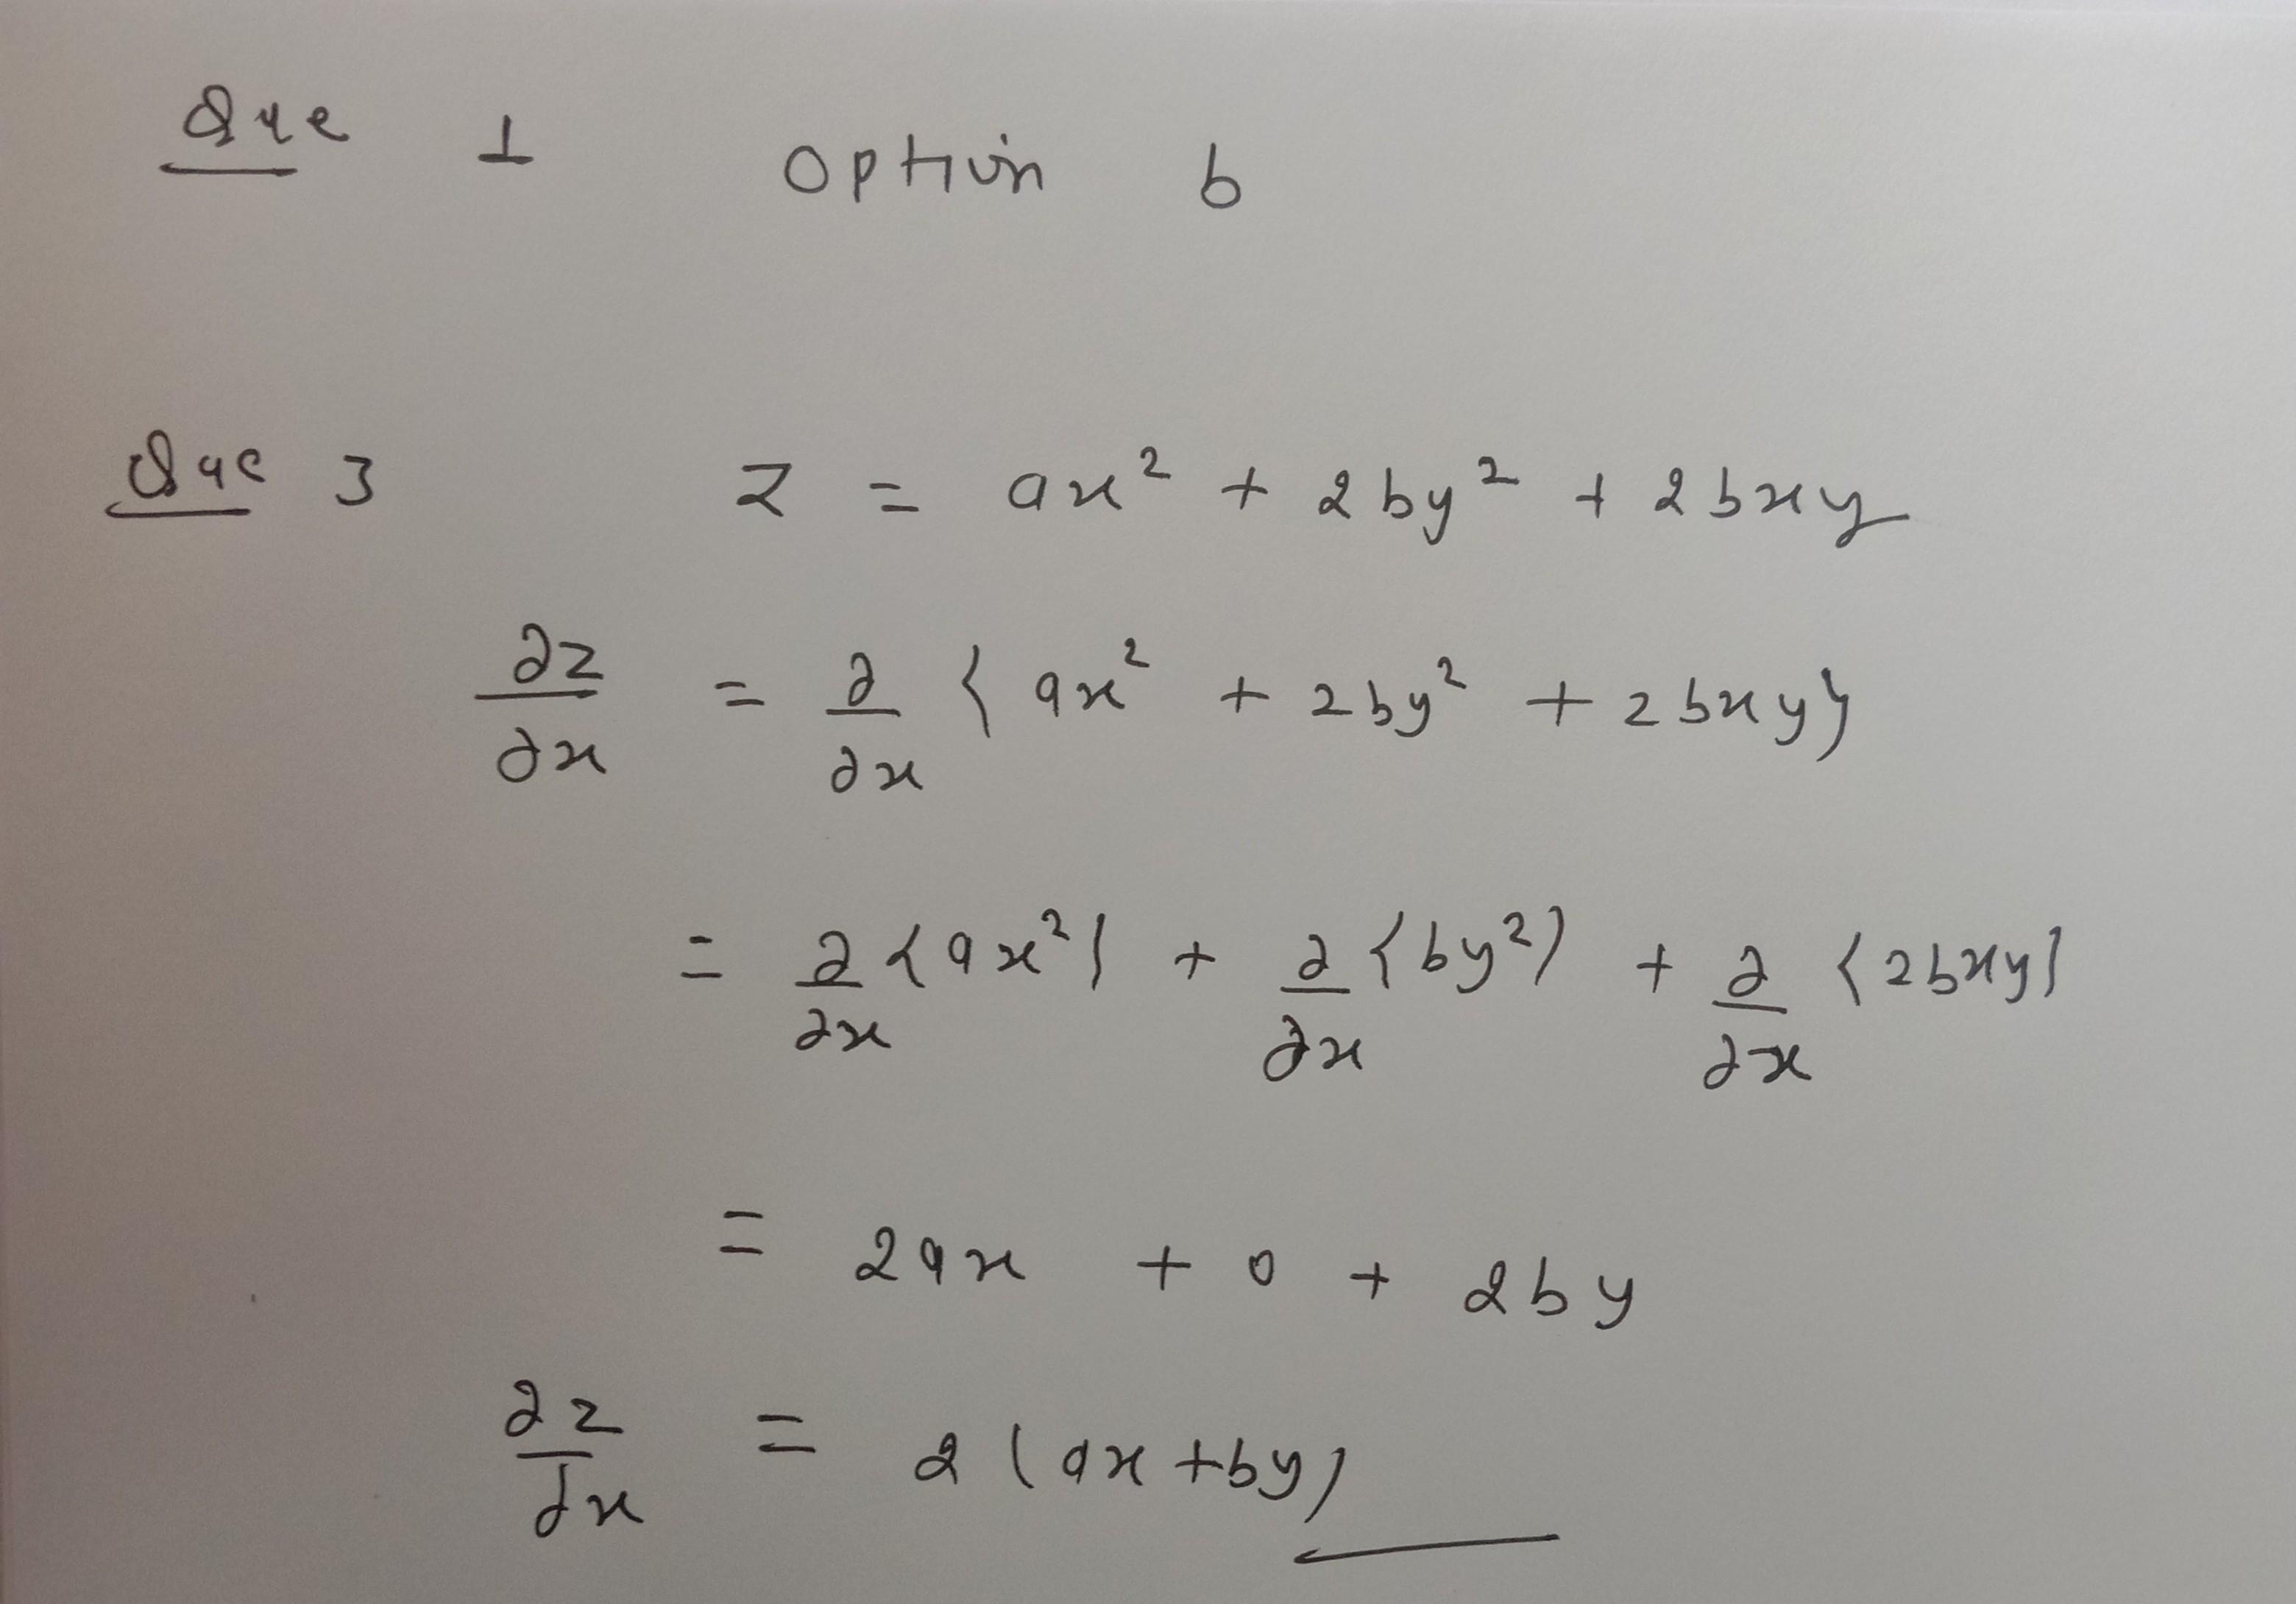 Que 1 Option b
Que 3 z = ax² + 2by² + 2bxy
∂z/∂x = ∂/∂x { ax² + 2by² + 2bxy}
= ∂/∂x {ax²} + ∂/∂x {by²} + ∂/∂x {2bxy}
= 2ax + 0 + 2by
∂z/∂x = 2(ax+by)